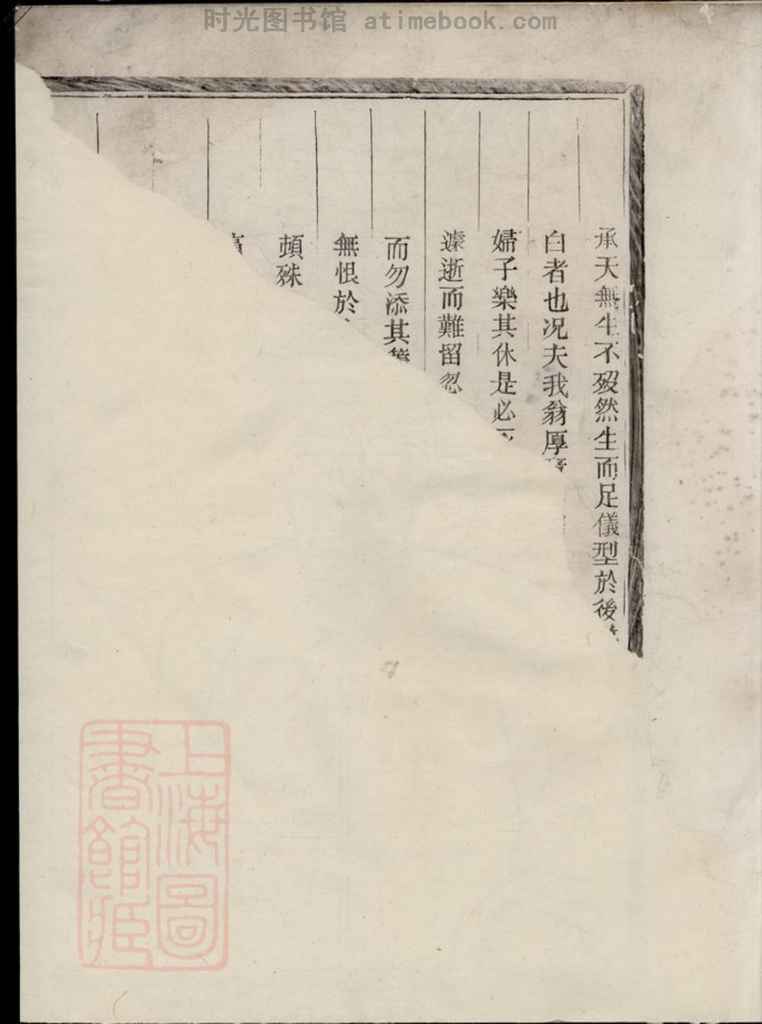 时光图书馆 atimebook.com
承天無生不歿然生而足儀型於後
白者也况夫我翁厚
婦子樂其休是必
遽逝而難留忽
而勿添其籌
無恨於
頔殊
上海圖
書館藏